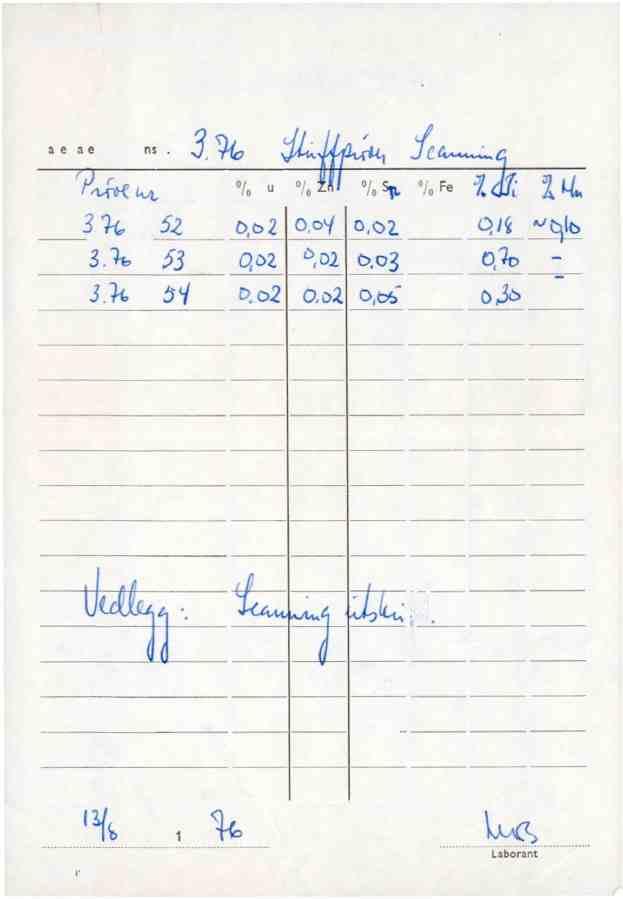 a e a e ns. 3.76 Stuffprøver Scanning
Prøve nr % u % Zn % S % Fe % Ti % Mn
3.76 52 0,02 0,04 0,02 0,18 ~0,10
3.76 53 0,02 0,02 0.03 0,70 -
3.76 54 0.02 0.02 0,05 0,30
Vedlegg: Scanning utskri
13/8 1 76
Laborant